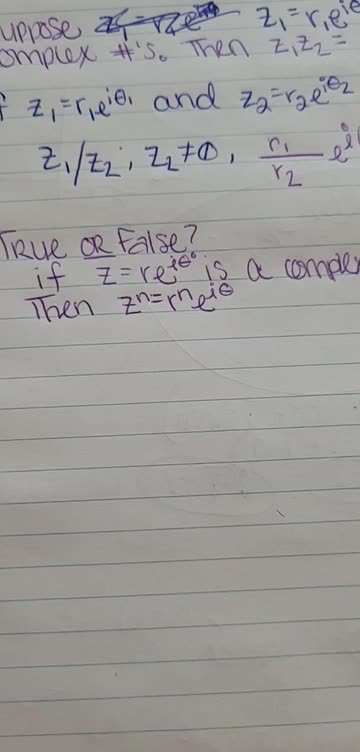 uppose z₁ = r₁e^iθ
omplex #'s. Then z₁z₂ =
f z₁=r₁e^iθ₁ and z₂=r₂e^iθ₂
z₁/z₂, z₂≠0, r₁/r₂ e^i
TRUE OR False?
if z=re^iθ is a comple
Then zⁿ=rⁿe^iθ